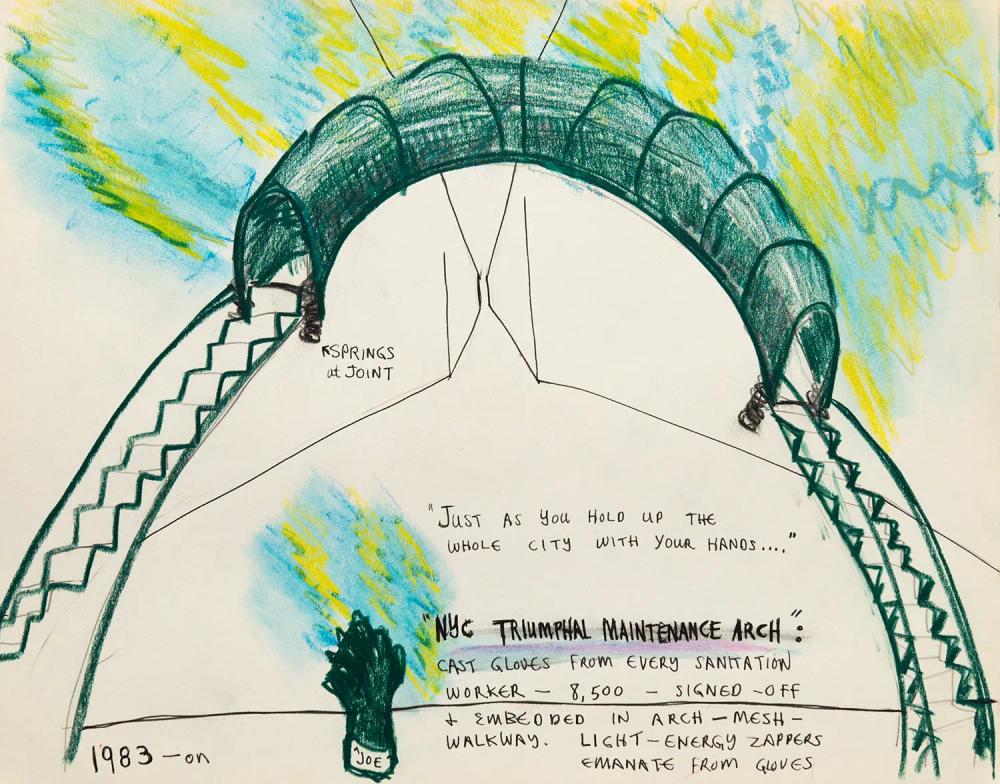 ↖SPRINGS
at JOINT
"JUST AS YOU HOLD UP THE
WHOLE CITY WITH YOUR HANDS...."
"NYC TRIUMPHAL MAINTENANCE ARCH":
CAST GLOVES FROM EVERY SANITATION
WORKER — 8,500 — SIGNED-OFF
+ EMBEDDED IN ARCH—MESH—
WALKWAY. LIGHT-ENERGY ZAPPERS
EMANATE FROM GLOVES
JOE
1983—on